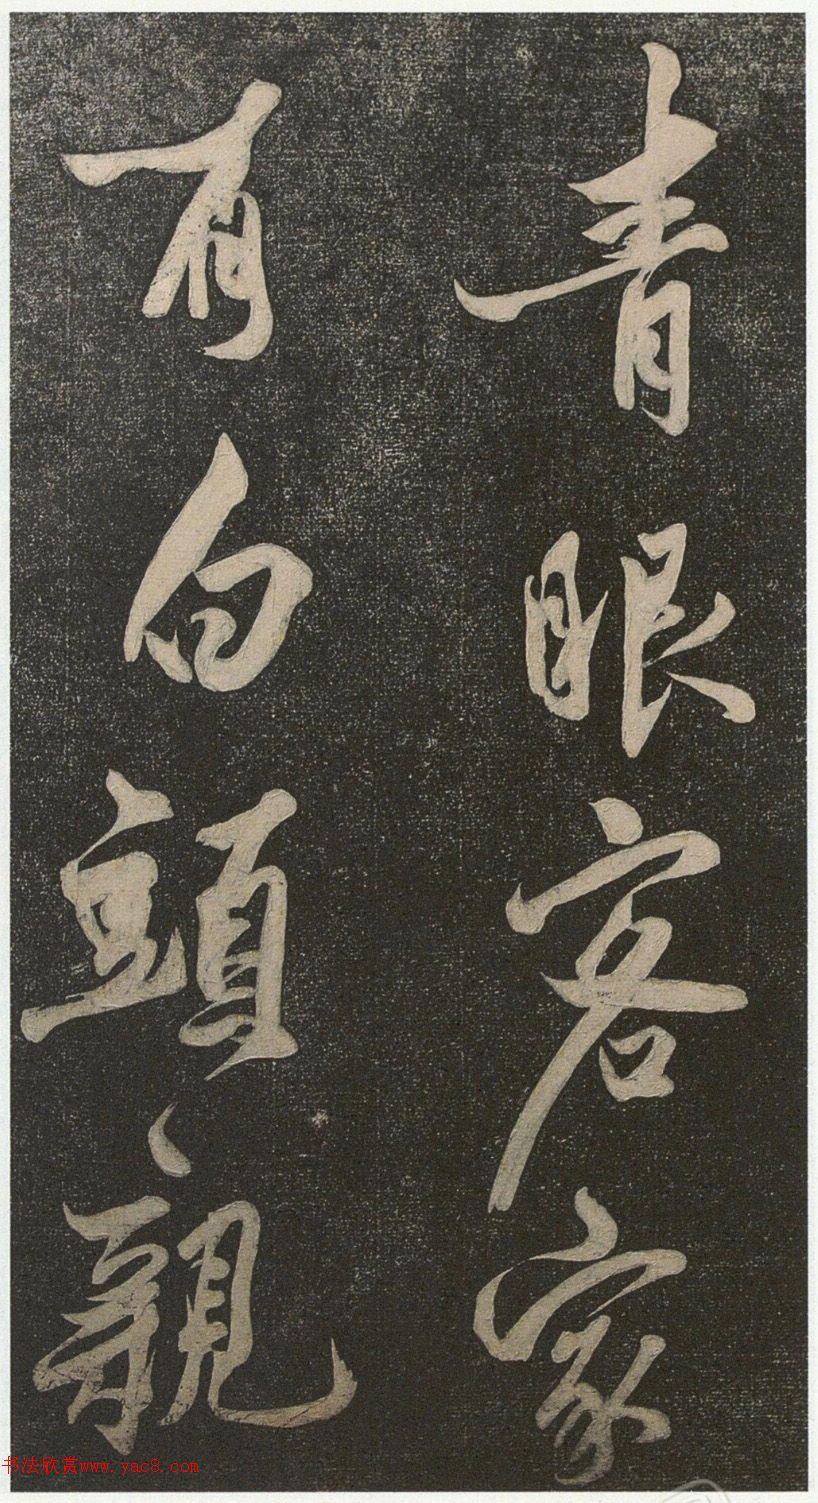 青眼客家
有白頭親
书法欣赏www.yac8.com